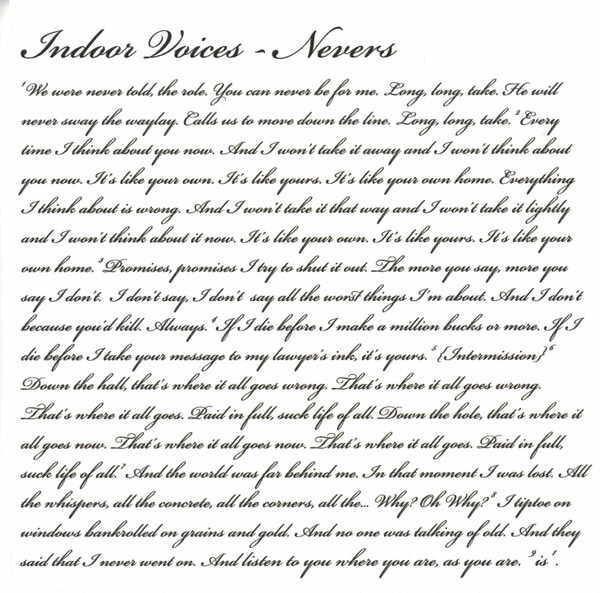 Indoor Voices - Nevers
¹We were never told, the role. You can never be for me. Long, long, take. He will
never sway the waylay. Calls us to move down the line. Long, long, take.² Every
time I think about you now. And I won't take it away and I won't think about
you now. It's like your own. It's like yours. It's like your own home. Everything
I think about is wrong. And I won't take it that way and I won't take it lightly
and I won't think about it now. It's like your own. It's like yours. It's like your
own home.³ Promises, promises I try to shut it out. The more you say, more you
say I don't. I don't say, I don't say all the worst things I'm about. And I don't
because you'd kill. Always.⁴ If I die before I make a million bucks or more. If I
die before I take your message to my lawyer's ink, it's yours.⁵ {Intermission}⁶
Down the hall, that's where it all goes wrong. That's where it all goes wrong.
That's where it all goes. Paid in full, suck life of all. Down the hole, that's where it
all goes now. That's where it all goes now. That's where it all goes. Paid in full,
suck life of all.⁷ And the world was far behind me. In that moment I was lost. All
the whispers, all the concrete, all the corners, all the... Why? Oh Why?⁸ I tiptoe on
windows bankrolled on grains and gold. And no one was talking of old. And they
said that I never went on. And listen to you where you are, as you are. ⁹is¹.